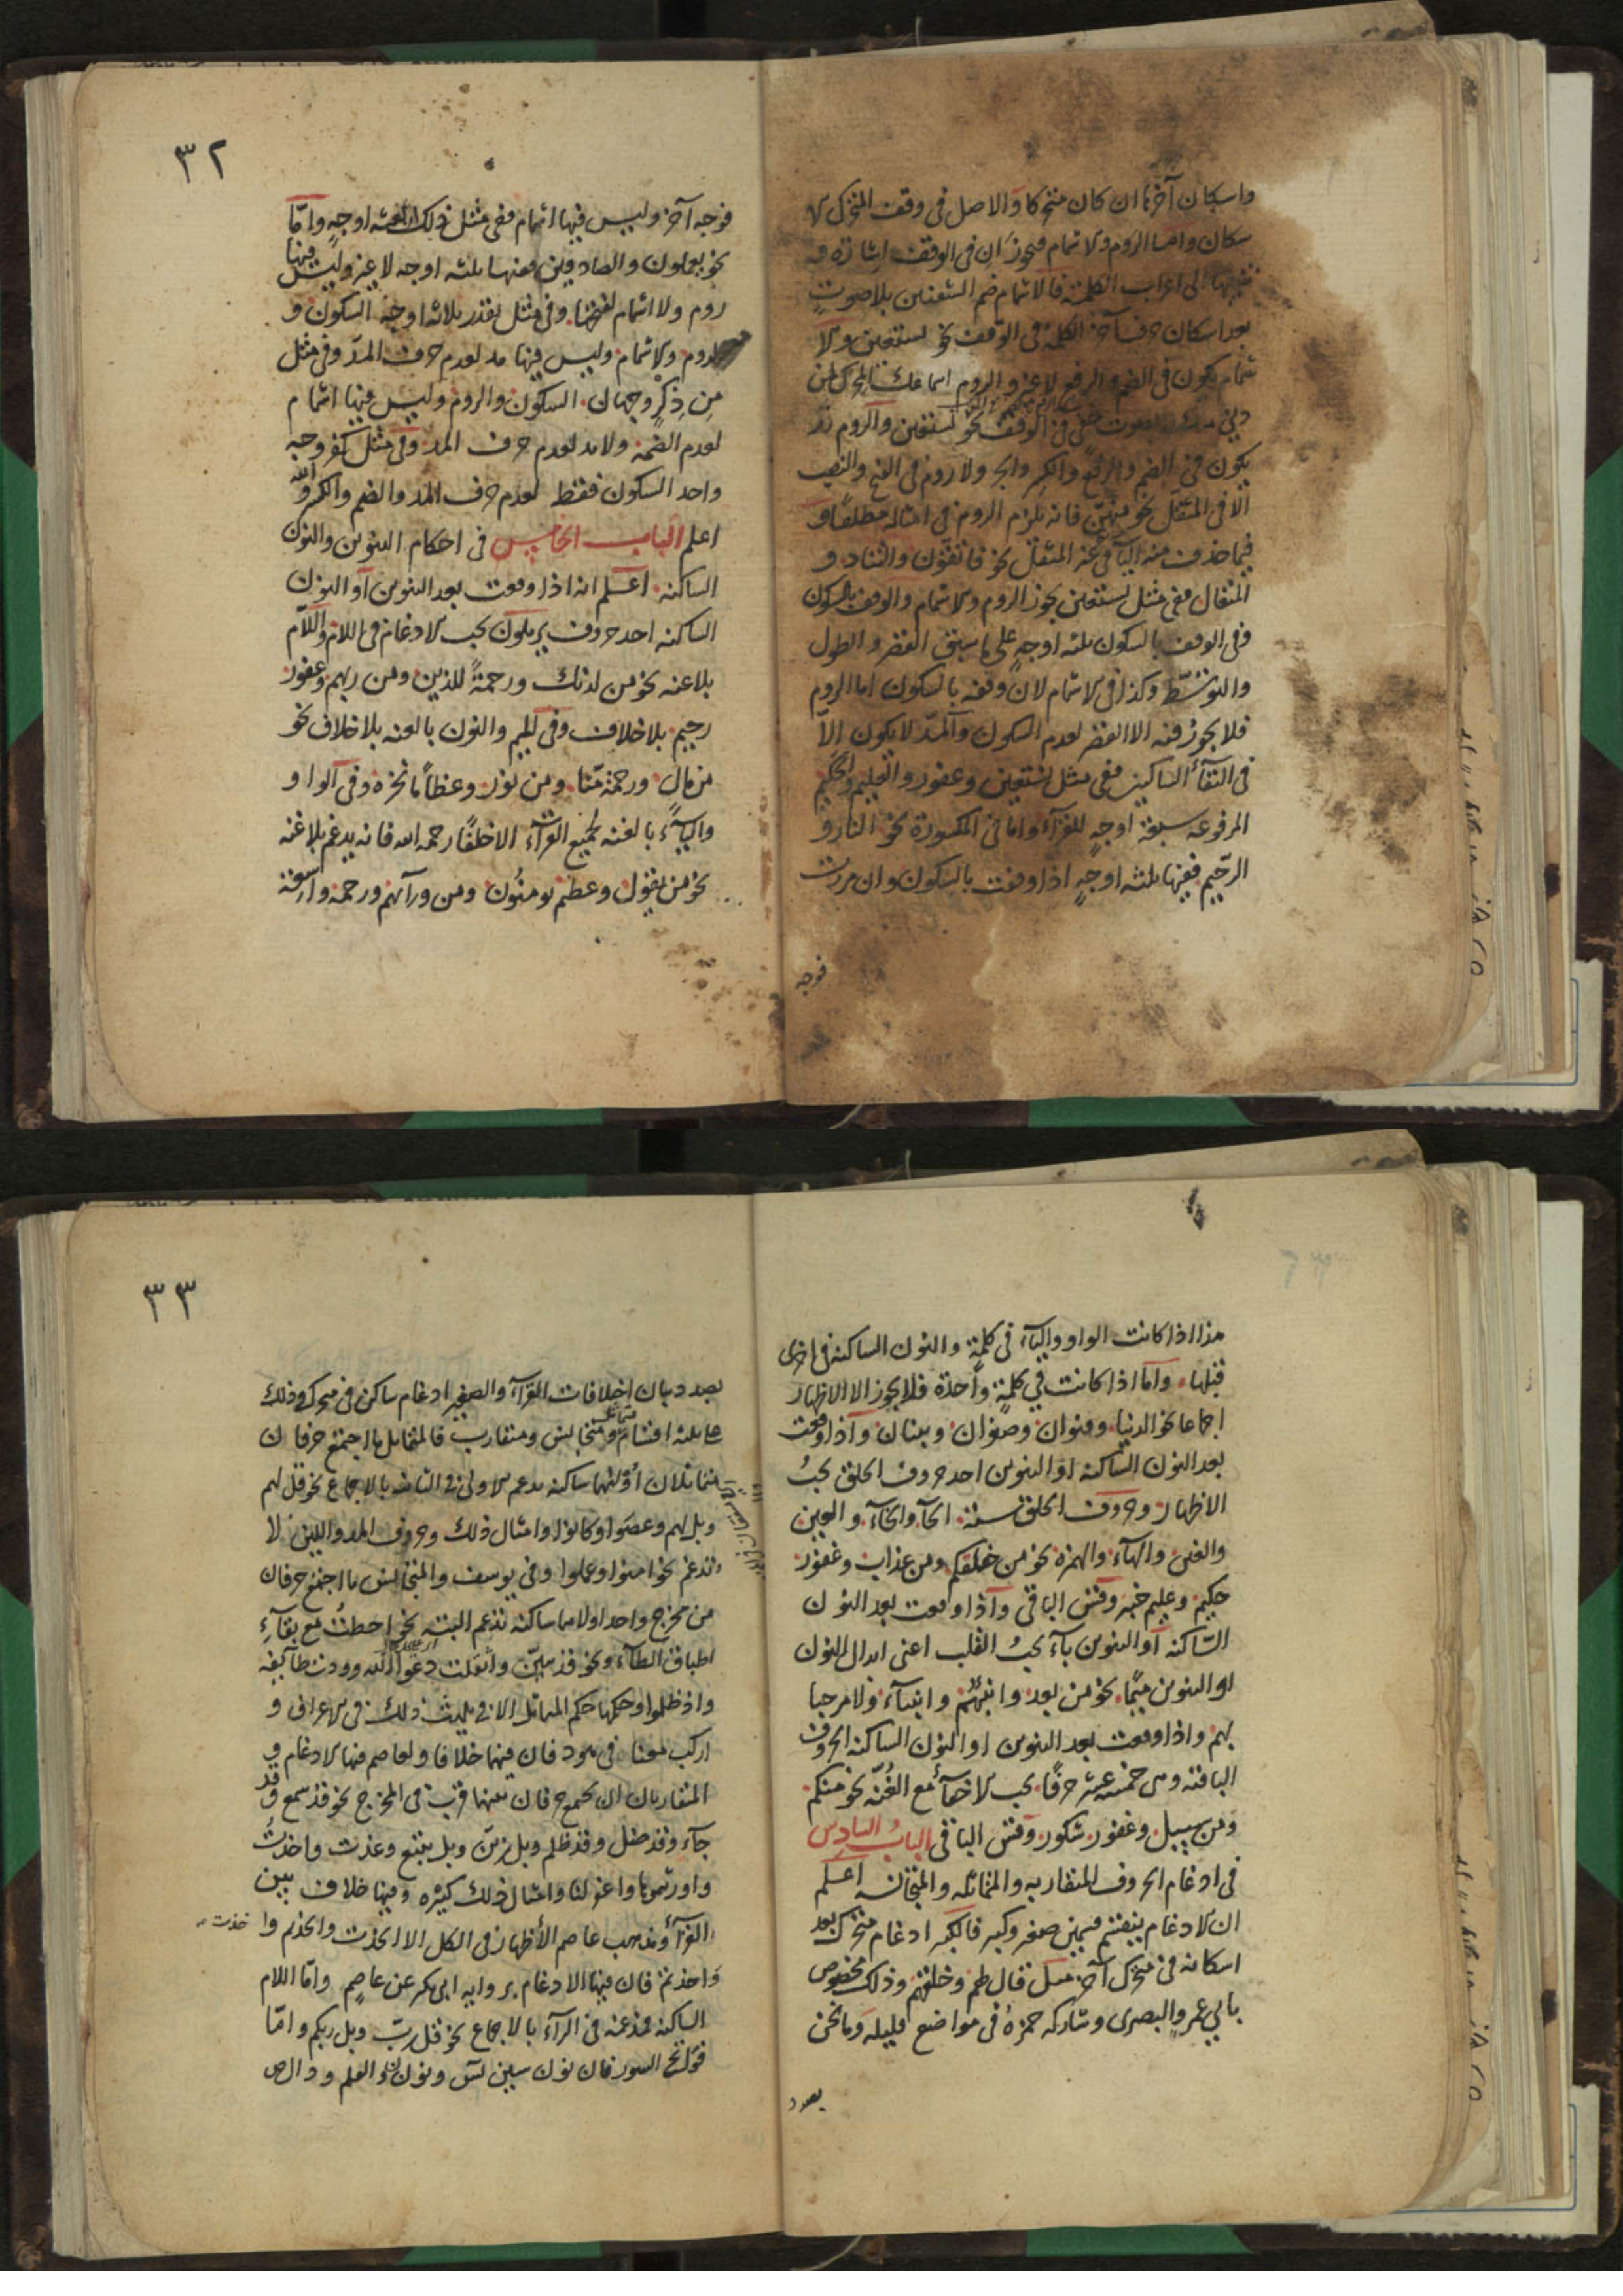 واسكان آخرها ان كان متحركا والاصل فى وقف المتحرك الا
سكان واما الروم والاشمام فيجوز ان فى الوقف اشارة و
تنبيها الى اعراب الكلمة فالاشمام ضم الشفتين بلا صوت
بعد اسكان حرف آخر الكلمة فى الوقف نحو نستعين والا
شمام يكون فى الضم والرفع لا غير والروم اسماعك المحرك
صوت خفى فى الوقف نحو نستعين والروم قد
يكون فى الضم والرفع والكسر والجر ولا روم فى الفتح والنصب
الا فى المثقل نحو منهن فانه يلزم الروم فى امثاله مطلقا و
فيما حذف منه الياء عند المثقل نحو فاتقون والتناد و
المتعال ففى مثل نستعين يجوز الروم والاشمام والوقف بالسكون
ففى الوقف بالسكون ثلثه اوجه على ما سبق القصر والطول
والتوسط وكذا فى الاشمام لان وقفه بالسكون اما الروم
فلا يجوز فيه الا القصر لعدم السكون والمد لا يكون الا
فى التقاء الساكنين ففى مثل نستعين وغفور والعليم والحكيم
المرفوعه سبعة اوجه للقراء واما فى المكسورة نحو النار و
الرحيم ففيها ثلثه اوجه اذا وقفت بالسكون وان مررت
فوجه
٣٢
فوجه آخر وليس فيها اشمام ففى مثل ذلك اربعة اوجه واما
نحو يعملون والصادقين ففيها ثلثه اوجه لا غير وليس فيها
روم ولا اشمام لفتحها وفى مثل نقدر ثلاثه اوجه السكون و
الروم والاشمام وليس فيها مد لعدم حرف المد وفى مثل
من ذكر وجهان السكون والروم وليس فيها اشمام
لعدم الضمه ولا مد لعدم حرف المد وفى مثل كفر وجه
واحد السكون فقط لعدم حرف المد والضم والكسر والله
اعلم الباب الخامس فى احكام التنوين والنون
الساكنه اعلم انه اذا وقعت بعد التنوين او النون
الساكنه احد حروف يرملون يجب الادغام فى اللام واللام
بلا غنه نحو من لدنك ورحمة للذين ومن ربهم وغفور
رحيم بلا خلاف وفى الميم والنون بالغنه بلا خلاف نحو
من مال ورحمة منا ومن نور وعظاما نخره وفى الواو
والياء بالغنه لجميع القراء الا خلفا رحمه الله فانه يدغم بلا غنه
نحو من يقول وعظم يومنون ومن ورآئهم ورحمة واسعة
هذا اذا كانت الواو والياء فى كلمة والنون الساكنه فى اخرى
قبلها واما اذا كانت فى كلمة واحدة فلا يجوز الا الاظهار
اجماعا نحو الدنيا وقنوان وصنوان وبنيان واذا وقعت
بعد النون الساكنه او التنوين احد حروف الحلق يجب
الاظهار وحروف الحلق ستة الحآء والخآء والعين
والغين والهآء والهمزه نحو من خلقكم ومن عذاب وغفور
حكيم وعليم خبير وقس الباقى واذا وقعت بعد النون
الساكنه او التنوين بآء يجب القلب اعنى ابدال النون
او التنوين ميما نحو من بعد وانبئهم وانبيآء ولا مرحبا
بهم واذا وقعت بعد التنوين او النون الساكنه الحروف
الباقيه وهى خمسه عشر حرفا يجب الاخفآء مع الغنه نحو منكم
ومن سبيل وغفور شكور وقس الباقى الباب السادس
فى ادغام الحروف المتقاربه والمتماثله والمتجانسه اعلم
ان الادغام ينقسم قسمين صغير وكبير فالكبير ادغام متحرك بعد
اسكانه فى متحرك آخر مثل قال لهم وخلقكم وذلك مخصوص
بابى عمرو البصرى وشاركه حمزه فى مواضع قليله وما نحن
بصدد
٣٣
بصدد بيان اختلافات القرآء والصغير ادغام ساكن فى متحرك وذلك
على ثلثه اقسام متماثل ومتجانس ومتقارب فالمتماثل ما اجتمع حرفان
متماثلان اولهما ساكنه يدغم الاولى فى الثانيه بالاجماع نحو قل لهم
وبل لهم وعصوا وكانوا وامثال ذلك وحروف المد واللين لا
تدغم نحو امنوا وعملوا وفى يوسف والمتجانس ما اجتمع حرفان
من مخرج واحد اولاهما ساكنه تدغم البته نحو احطت مع بقآء
اطباق الطآء ونحو قد تبين واثقلت دعوا الله وودت طآئفه
واذ ظلموا وحكمها حكم المتماثل الا فى يلهث ذلك فى الاعراف و
اركب معنا فى هود فان فيهما خلافا ولعاصم فيهما الادغام و
المتقاربان ان يجتمع حرفان بينهما قرب فى المخرج نحو قد سمع وقد
جآء وقد ضل وقد ظلم وبل زين وبل نتبع وعذت واخذت
واورثتموها واغفر لنا وامثال ذلك كثيره وفيها خلاف بين
القرآء ومذهب عاصم الاظهار فى الكل الا اتخذت واتخذتم وا
خذت
واخذتم فان فيها الادغام بروايه ابى بكر عن عاصم واما اللام
الساكنه فمدغمه فى الرآء بالاجماع نحو قل رب وبل ربكم واما
فواتح السور فان نون سين يس ونون ن والقلم ودال ص